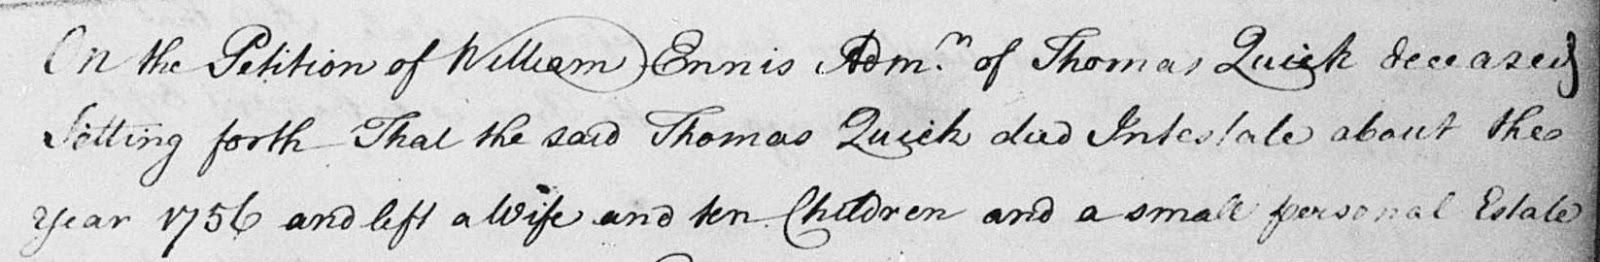 On the Petition of William Ennis Adm.n of Thomas Quick deceased
Setting forth That the said Thomas Quick died Intestate about the
Year 1756 and left a Wife and ten Children and a small personal Estate